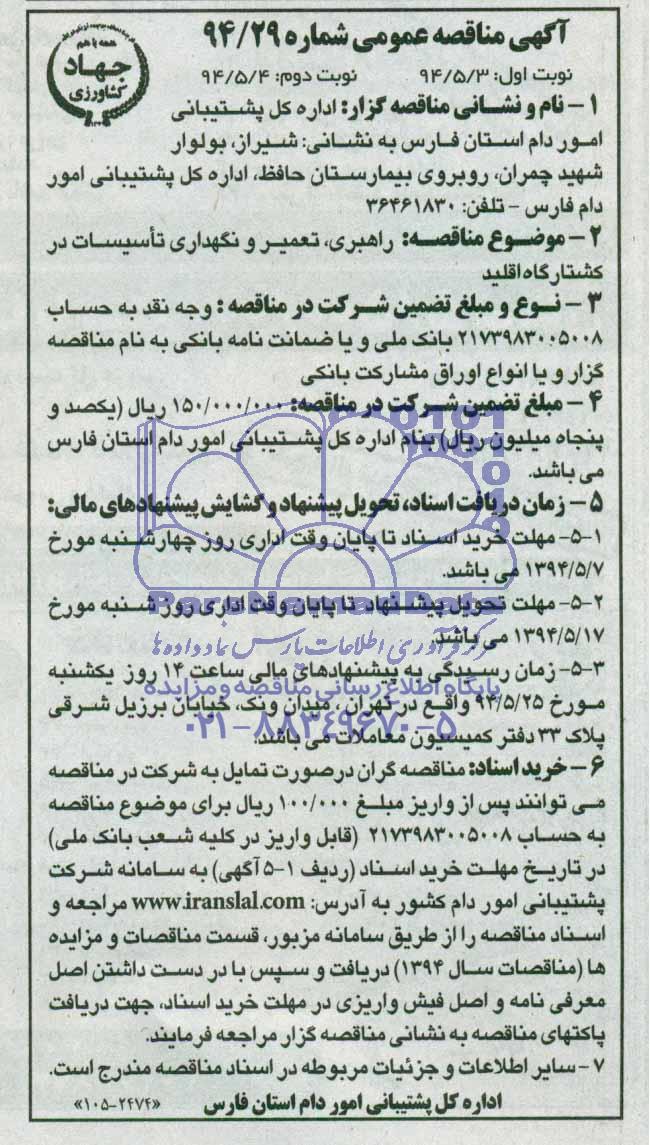 آگهی مناقصه عمومی شماره ۹۴/۲۹
نوبت اول: ۹۴/۵/۳ نوبت دوم: ۹۴/۵/۴
همه با هم
جهاد
کشاورزی
۱- نام و نشانی مناقصه گزار: اداره کل پشتیبانی
امور دام استان فارس به نشانی: شیراز، بولوار
شهید چمران، روبروی بیمارستان حافظ، اداره کل پشتیبانی امور
دام فارس - تلفن: ۳۶۴۶۱۸۳۰
۲- موضوع مناقصه: راهبری، تعمیر و نگهداری تأسیسات در
کشتارگاه اقلید
۳- نوع و مبلغ تضمین شرکت در مناقصه: وجه نقد به حساب
۲۱۷۳۹۸۳۰۰۵۰۰۸ بانک ملی و یا ضمانت نامه بانکی به نام مناقصه
گزار و یا انواع اوراق مشارکت بانکی
۴- مبلغ تضمین شرکت در مناقصه: ۱۵۰/۰۰۰/۰۰۰ ریال (یکصد و
پنجاه میلیون ریال) بنام اداره کل پشتیبانی امور دام استان فارس
می باشد.
۵- زمان دریافت اسناد، تحویل پیشنهاد و گشایش پیشنهادهای مالی:
۵-۱- مهلت خرید اسناد تا پایان وقت اداری روز چهارشنبه مورخ
۱۳۹۴/۵/۷ می باشد.
ParsNamadData
۵-۲- مهلت تحویل پیشنهاد تا پایان وقت اداری روز شنبه مورخ
۱۳۹۴/۵/۱۷ می باشد.
مرکز فرآوری اطلاعات پارس نماد داده ها
۵-۳- زمان رسیدگی به پیشنهادهای مالی ساعت ۱۴ روز یکشنبه
پایگاه اطلاع رسانی مناقصه و مزایده
مورخ ۹۴/۵/۲۵ واقع در تهران، میدان ونک، خیابان برزیل شرقی
۰۲۱-۸۸۳۴۹۶۷۰-۵
پلاک ۳۳ دفتر کمیسیون معاملات می باشد.
۶- خرید اسناد: مناقصه گران درصورت تمایل به شرکت در مناقصه
می توانند پس از واریز مبلغ ۱۰۰/۰۰۰ ریال برای موضوع مناقصه
به حساب ۲۱۷۳۹۸۳۰۰۵۰۰۸ (قابل واریز در کلیه شعب بانک ملی)
در تاریخ مهلت خرید اسناد (ردیف ۱-۵ آگهی) به سامانه شرکت
پشتیبانی امور دام کشور به آدرس: www.iranslal.com مراجعه و
اسناد مناقصه را از طریق سامانه مزبور، قسمت مناقصات و مزایده
ها (مناقصات سال ۱۳۹۴) دریافت و سپس با در دست داشتن اصل
معرفی نامه و اصل فیش واریزی در مهلت خرید اسناد، جهت دریافت
پاکتهای مناقصه به نشانی مناقصه گزار مراجعه فرمایند.
۷- سایر اطلاعات و جزئیات مربوطه در اسناد مناقصه مندرج است.
اداره کل پشتیبانی امور دام استان فارس «۱۰۵-۲۴۷۴»